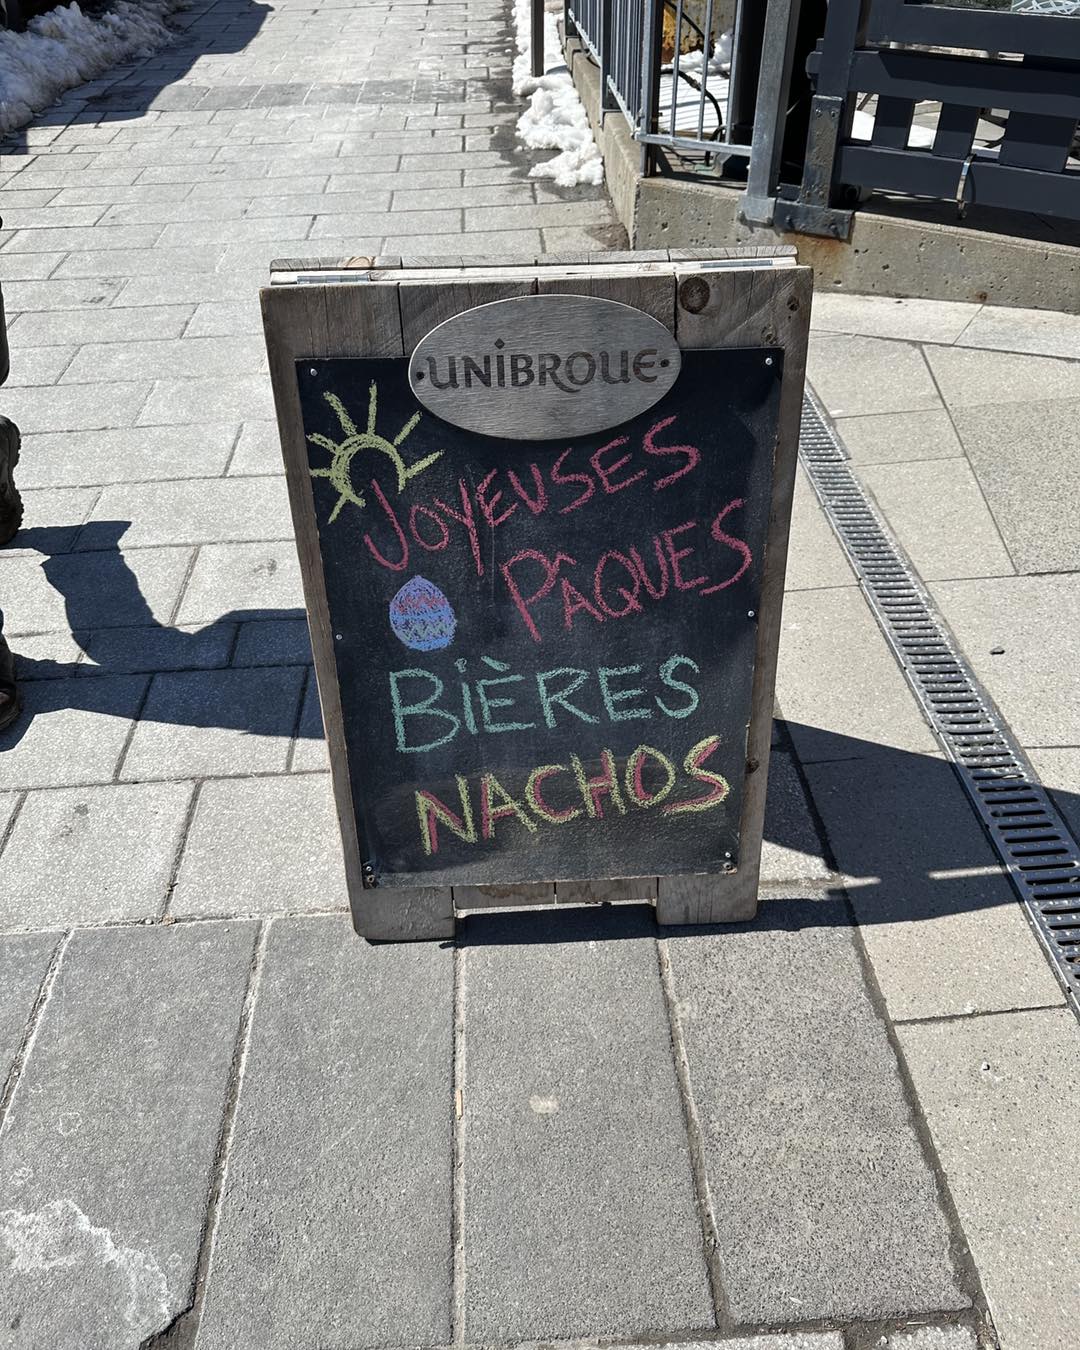 ·UNIBROUE·
JOYEUSES
PÂQUES
BIÈRES
NACHOS